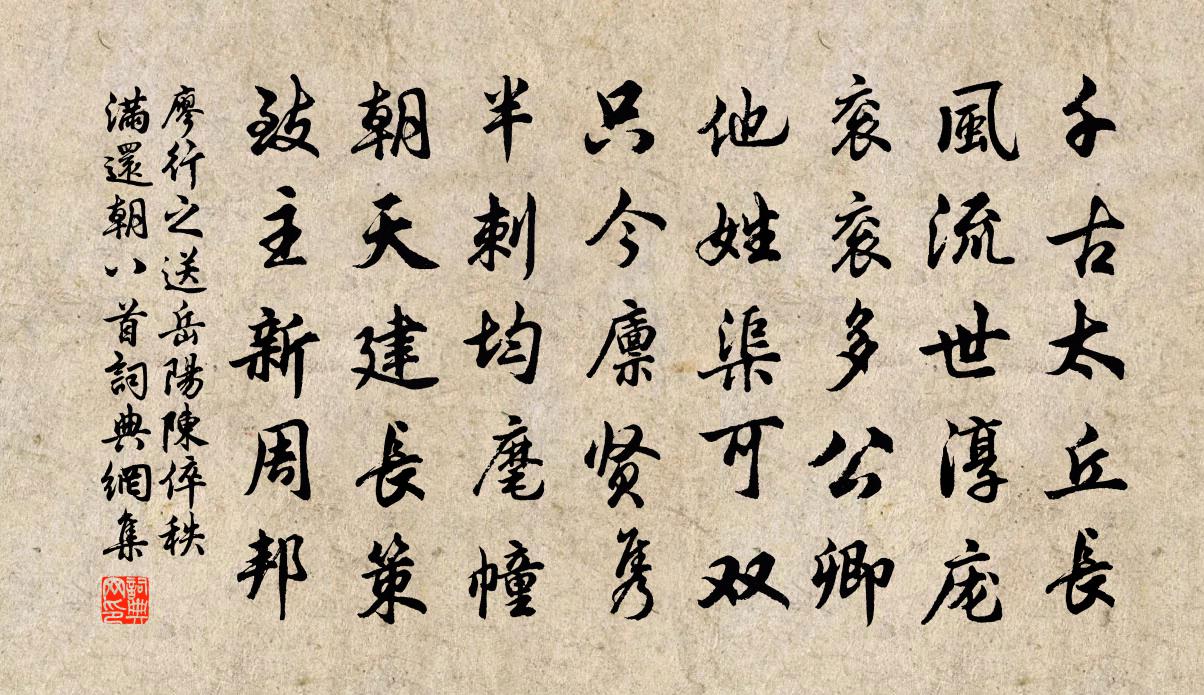 千古太丘長
風流世淳庞
衮衮多公卿
他姓渠可双
只今廪贤隽
半刺均麾幢
朝天建長策
致主新周邦
廖行之送岳陽陳倅秩
滿還朝八首詞典網集
詞典網印